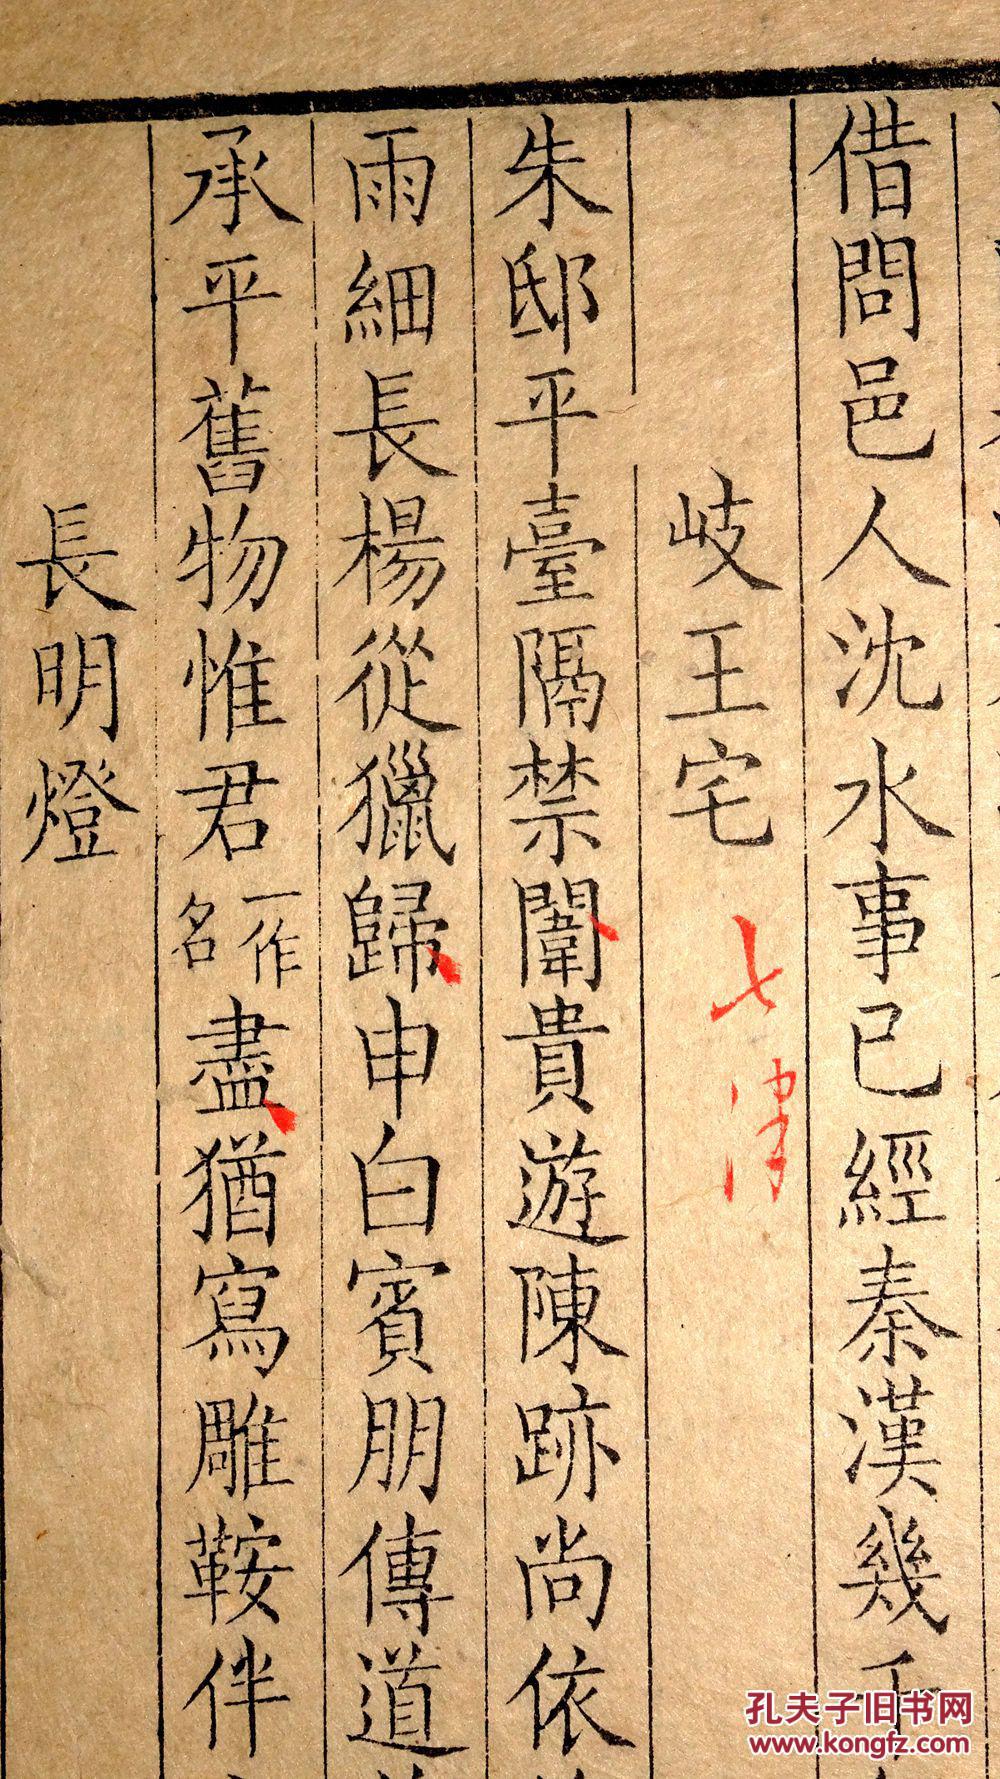 借問邑人沈水事已經秦漢幾千
岐王宅
七律
朱邸平臺隔禁闈貴遊陳跡尚依
雨細長楊從獵歸申白賓朋傳道
承平舊物惟君一作名盡猶寫雕鞍伴
長明燈
孔夫子旧书网
www.kongfz.com